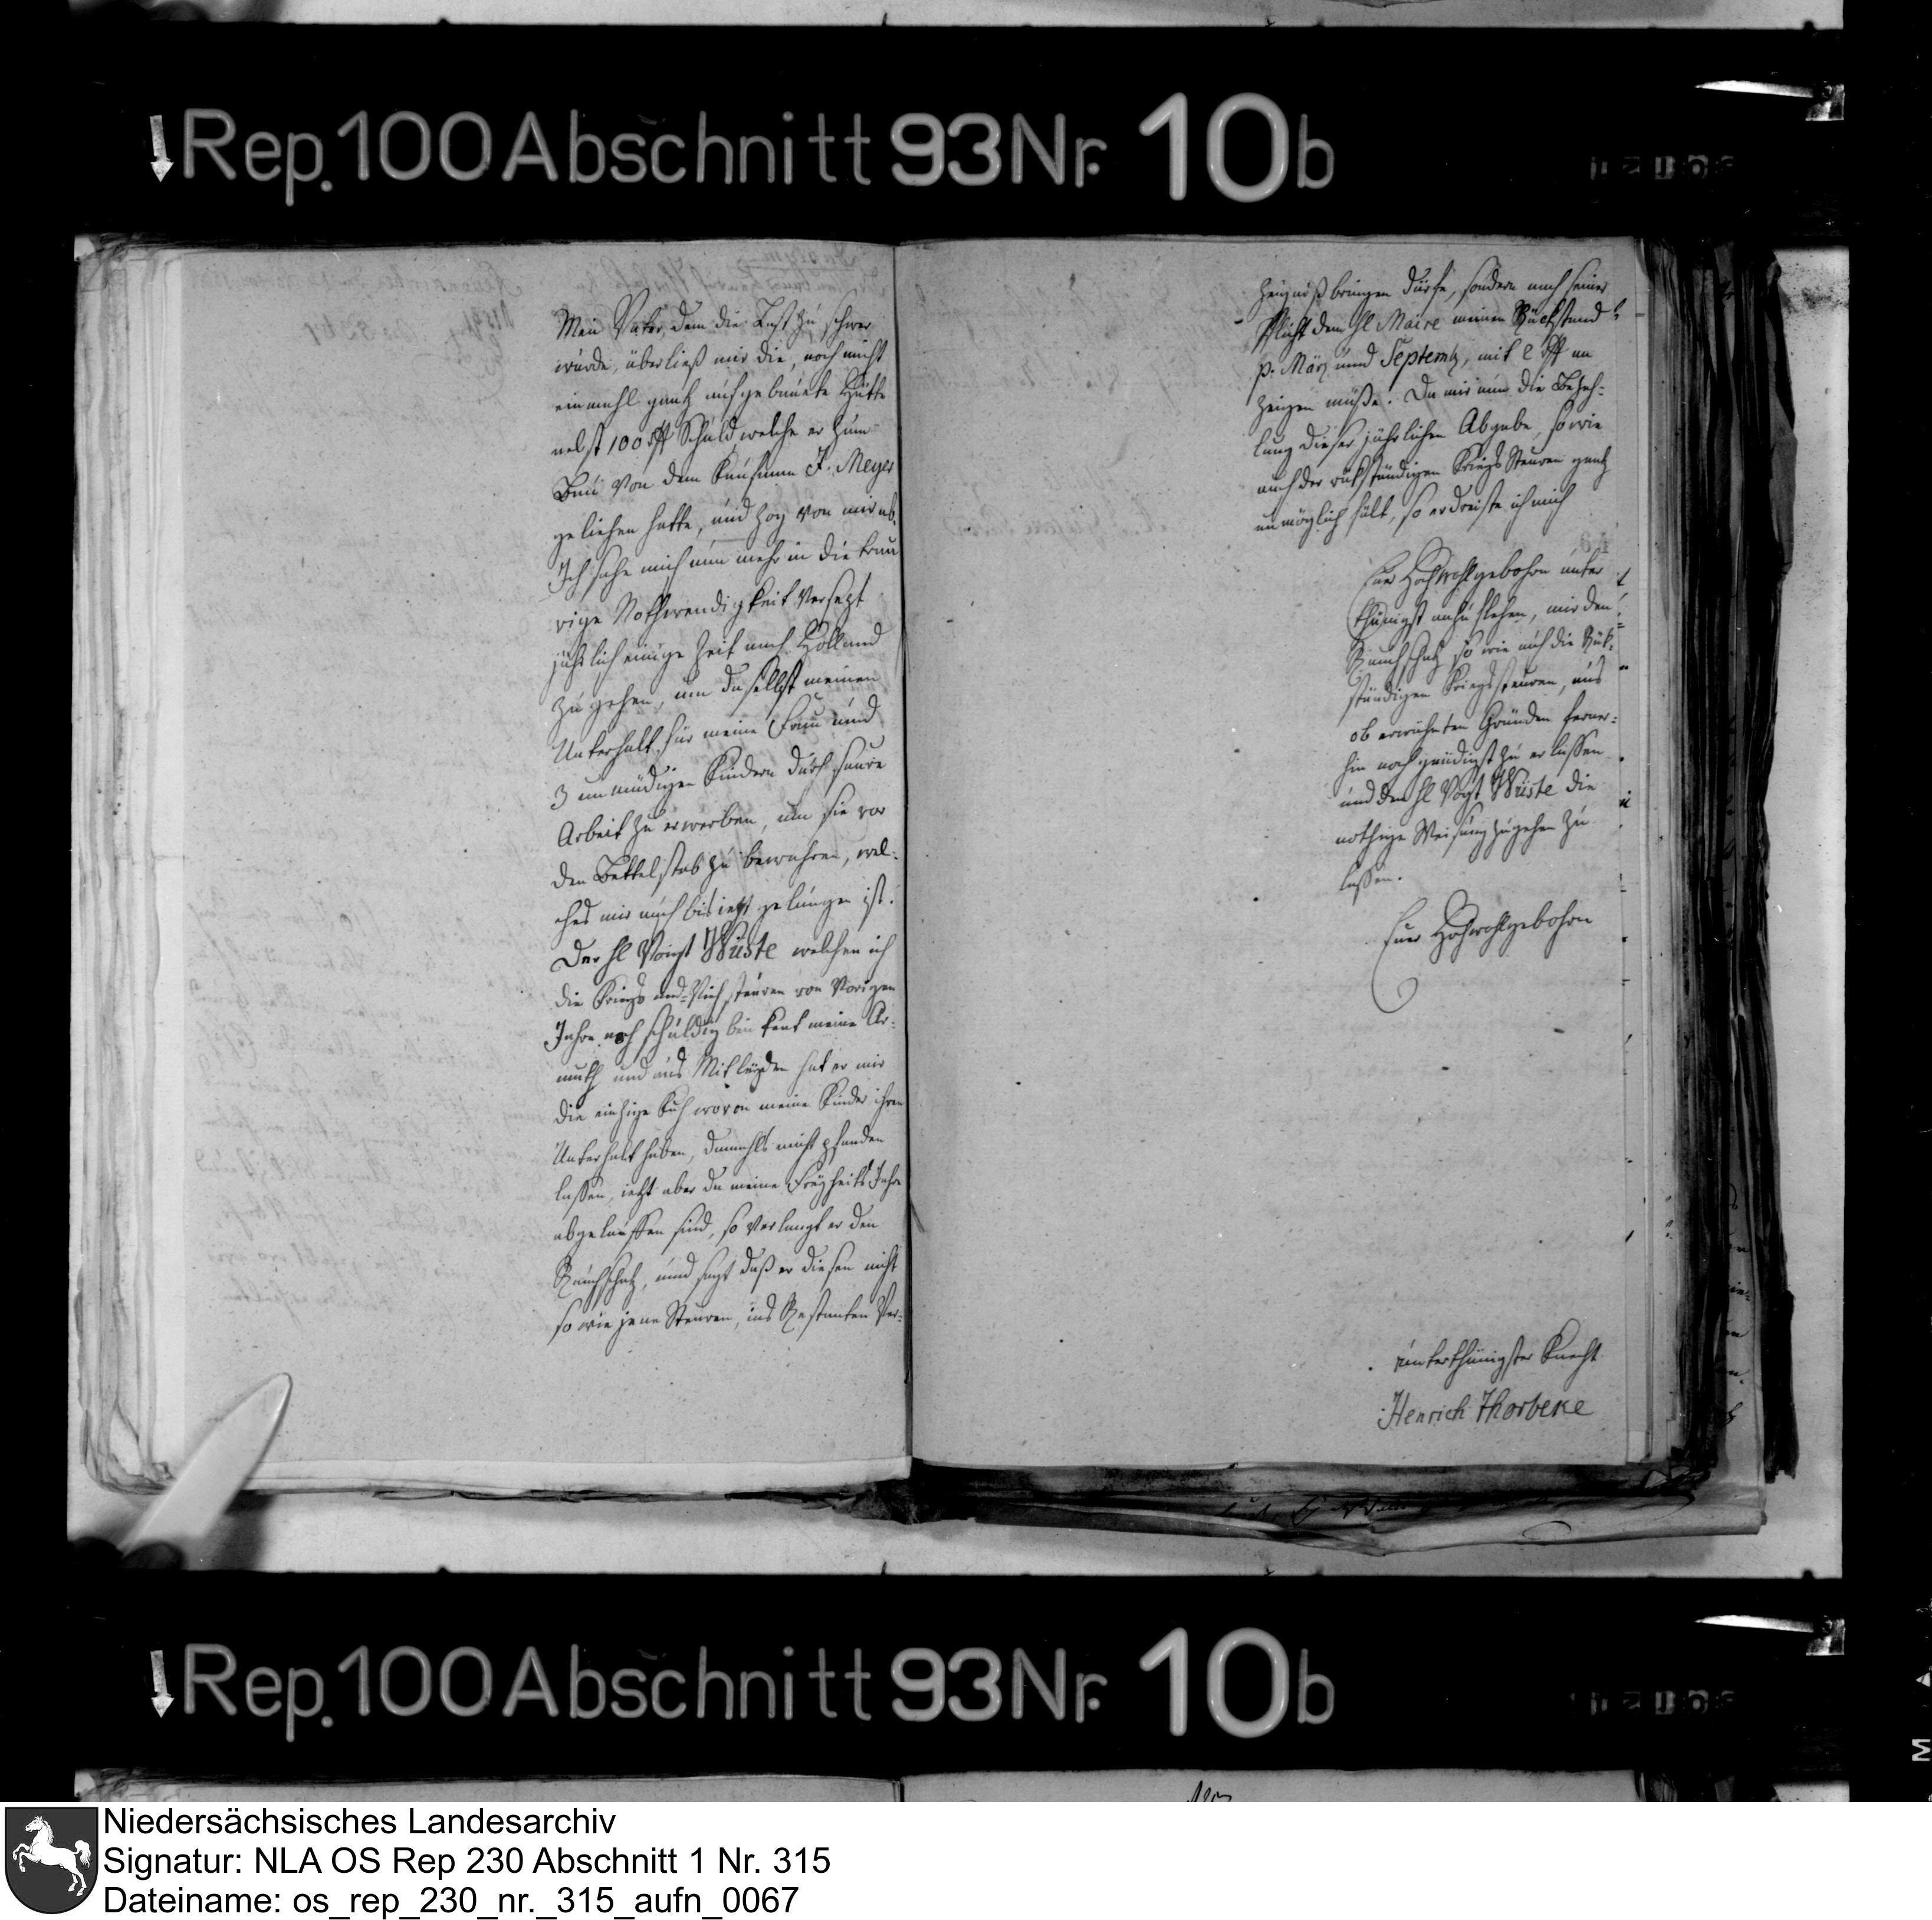 Rep. 100 Abschnitt 93 Nr. 10b
Mein Vater, dem die Last zu schwer
wurde, überließ mir die, noch nicht
einmahl gantz aufgebauete Hütte
nebst 100 Schuld welche er zum
Bau von dem Kaufmann J. Meyer
geliehen hatte, und zog von mir ab.
Ich sahe mich nun mehr in die trau
rige Nothwendigkeit versezt
jährlich einige Zeit nach Holland
zu gehen, um daselbst meinen
Unterhalt für meine Frau und
3 unmündigen Kindern durch saure
Arbeit zu erwerben, um sie vor
den Bettelstab zu bewahren, wel-
ches mir auch bis jetzt gelungen ist.
Der H Voigt Wüste welchen ich
die Kriegs und Viehsteuren von Vorigen
Jahre noch schuldig bin kent meine Ar-
muth und aus Mitleyden hat er mir
die eintzige Kuh wovon meine Kinder ihren
Unterhalt haben, damahls nicht pfanden
lassen, jetzt aber da meine Freyheits Jahre
abgelauffen sind, so verlangt er den
Rauchschatz, und sagt daß er diesen nicht
so wie jene Steuren, ins Restanten Ver-
zeigniß bringen dürfe, sondern nach seiner
Pflicht dem H Maire meinen Rückstand
p. März und Septemb, mit 2 an
zeigen müße. Da mir nun die Bezah-
lung dieser jährlichen Abgabe, so wie
auch der rükständigen Kriegs Steuren gantz
unmöglich fält, so erdreiste ich mich
Euer Hochwohlgebohrn unter
thänigst anzuflehen, mir den
Rauchschatz so wie auch die Rük-
ständigen Kriegssteuren, aus
ob erwähnten Gründen ferner-
hin noch gnädigst zu erlassen
und dem H Vogt Wüste die
nothige Weisung zugehen zu
lassen.
Euer Hochwohlgebohrn
unterthänigster Knecht
Henrich Thorbeke
Rep. 100 Abschnitt 93 Nr. 10b
Niedersächsisches Landesarchiv
Signatur: NLA OS Rep 230 Abschnitt 1 Nr. 315
Dateiname: os_rep_230_nr._315_aufn_0067